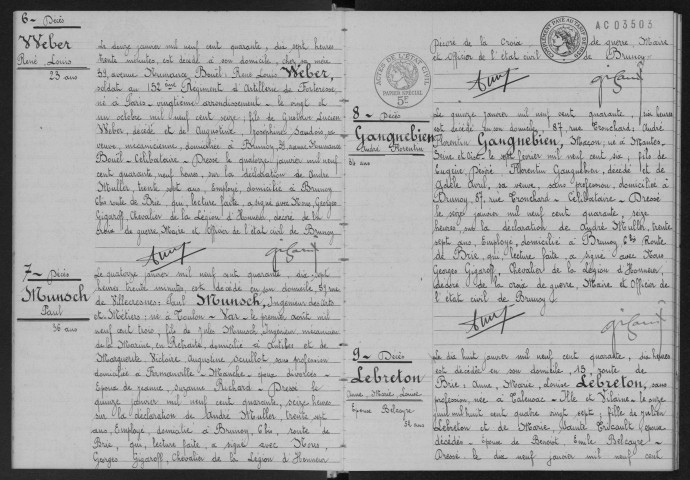 6 - Décès
Weber
René Louis
23 ans
Le douze janvier mil neuf cent quarante, dix sept heures
trente minutes, est décédé à son domicile, chez sa mère
39, avenue Normance Bouël, René Louis Weber,
soldat au 152ème Régiment d'Artillerie de Forteresse
né à Paris vingtième arrondissement, le vingt et
un octobre mil neuf cent seize, fils de Lucien
Weber, décédé et de Augustine Joséphine
veuve, mécanicienne, domiciliée à Brunoy, avenue Normance
Bouël - Célibataire - Dressé le quatorze janvier mil neuf
cent quarante, neuf heures, sur la déclaration de André
Muller, trente sept ans, Employé, domicilié à Brunoy
6bis route de Brie, qui, lecture faite, a signé avec Nous, Georges
Gigaroff, Chevalier de la Légion d'Honneur, décoré de la
Croix de guerre, Maire et Officier de l'état civil de Brunoy
7 - Décès
Munsch
Paul
36 ans
Le quatorze janvier mil neuf cent quarante, dix sept
heures trente minutes, est décédé en son domicile, rue
de Villecresnes: Paul Munsch, Ingénieur des Arts
et Métiers; né à Toulon - Var - le premier août mil
neuf cent trois, fils de Jules Munsch, Ingénieur mécanicien
de la Marine, en Retraite, domicilié à et de
Marguerite Victoire Augustine sans profession
domiciliée à Fermanville - Manche - époux divorcés -
Époux de Jeanne, Suzanne Richard - Dressé le
quinze janvier mil neuf cent quarante, seize heures
sur la déclaration de André Muller, trente sept
ans, Employé, domicilié à Brunoy, 6bis, route de
Brie, qui, lecture faite a signé avec Nous,
Georges Gigaroff, Chevalier de la Légion d'Honneur
AC03503
décoré de la Croix de guerre, Maire
et Officier de l'état civil de Brunoy
OFFICE DE L'ETAT CIVIL
PAPIER SPÉCIAL
5F
8 - Décès
Gangnebien
André Florentin
34 ans
Le quinze janvier mil neuf cent quarante, dix heures
est décédé en son domicile, 87, rue Tronchard: André
Florentin Gangnebien, Maçon, né à Mantes,
Seine et Oise - le sept février mil neuf cent six, fils de
Eugène Désiré Florentin Gangnebien, décédé et de
Adèle Avril, sa veuve, sans profession, domiciliée à
Brunoy, 87, rue Tronchard - Célibataire - Dressé
le seize janvier mil neuf cent quarante, seize
heures, sur la déclaration de André Muller, trente
sept ans, Employé, domicilié à Brunoy 6bis Route
de Brie, qui, lecture faite, a signé avec Nous
Georges Gigaroff, Chevalier de la Légion d'Honneur,
décoré de la croix de guerre, Maire et Officier de
l'état civil de Brunoy
9 - Décès
Lebreton
Anne, Marie, Louise
Épouse Belcayre
52 ans
Le dix huit janvier mil neuf cent quarante, dix heures
est décédée en son domicile, 13, route de
Brie: Anne, Marie, Louise Lebreton, sans
profession, née à Talensac - Ille et Vilaine - le onze
mil huit cent quatre vingt sept, fille de Julien
Lebreton et de Marie, époux
décédés - Épouse de Benoit Emile Belcayre -
Dressé le dix neuf janvier mil neuf cent